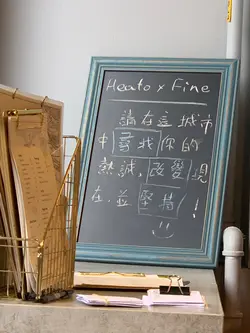 Heato x Fine
請在這城市
中尋找你的
熱誠,改變現
在.並堅持!